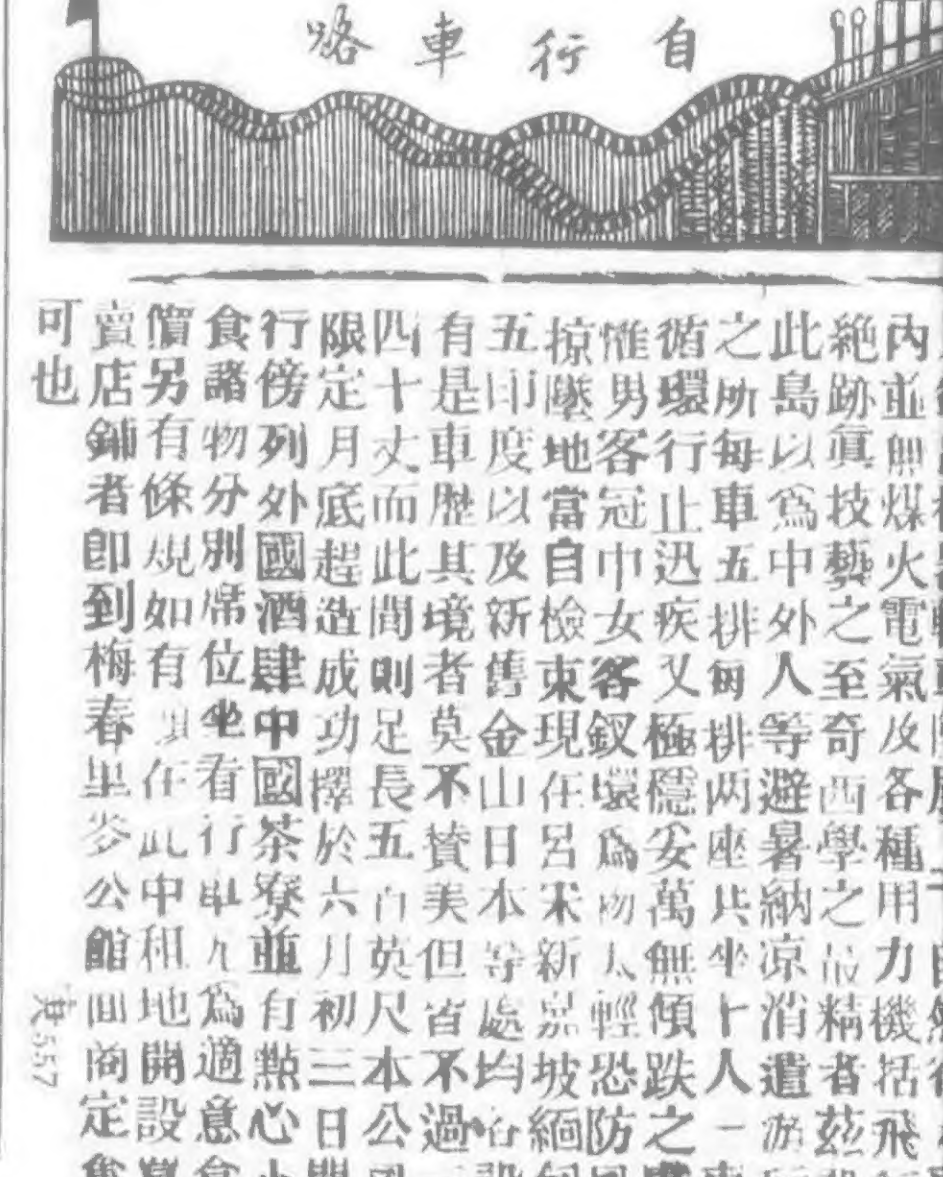 自行車略
內並無煤火電氣及各種用力機括飛
絶跡真技藝之至奇西學之最精者茲
此島以爲中外人等避暑納凉消遣游
之所每車五排每排两座共坐十人一
循環行止迅疾又極穩安萬無傾跌之
惟男客冠巾女客釵環爲物太輕恐防
掠墜地當自檢束現在呂宋新嘉坡緬
五印度以及新舊金山日本等處均
有是車歷其境者莫不贊美但皆不過
四十丈而此間則足長五百英尺本公
限定月底趕造成功擇於六月初三日開
行傍列外國酒肆中國茶寮並有點心小
食諸物分別席位坐看行車尤爲適意食
價另有條規如有在此中租地開設
賣店鋪者卽到梅春里麥公館面商定
可也
557